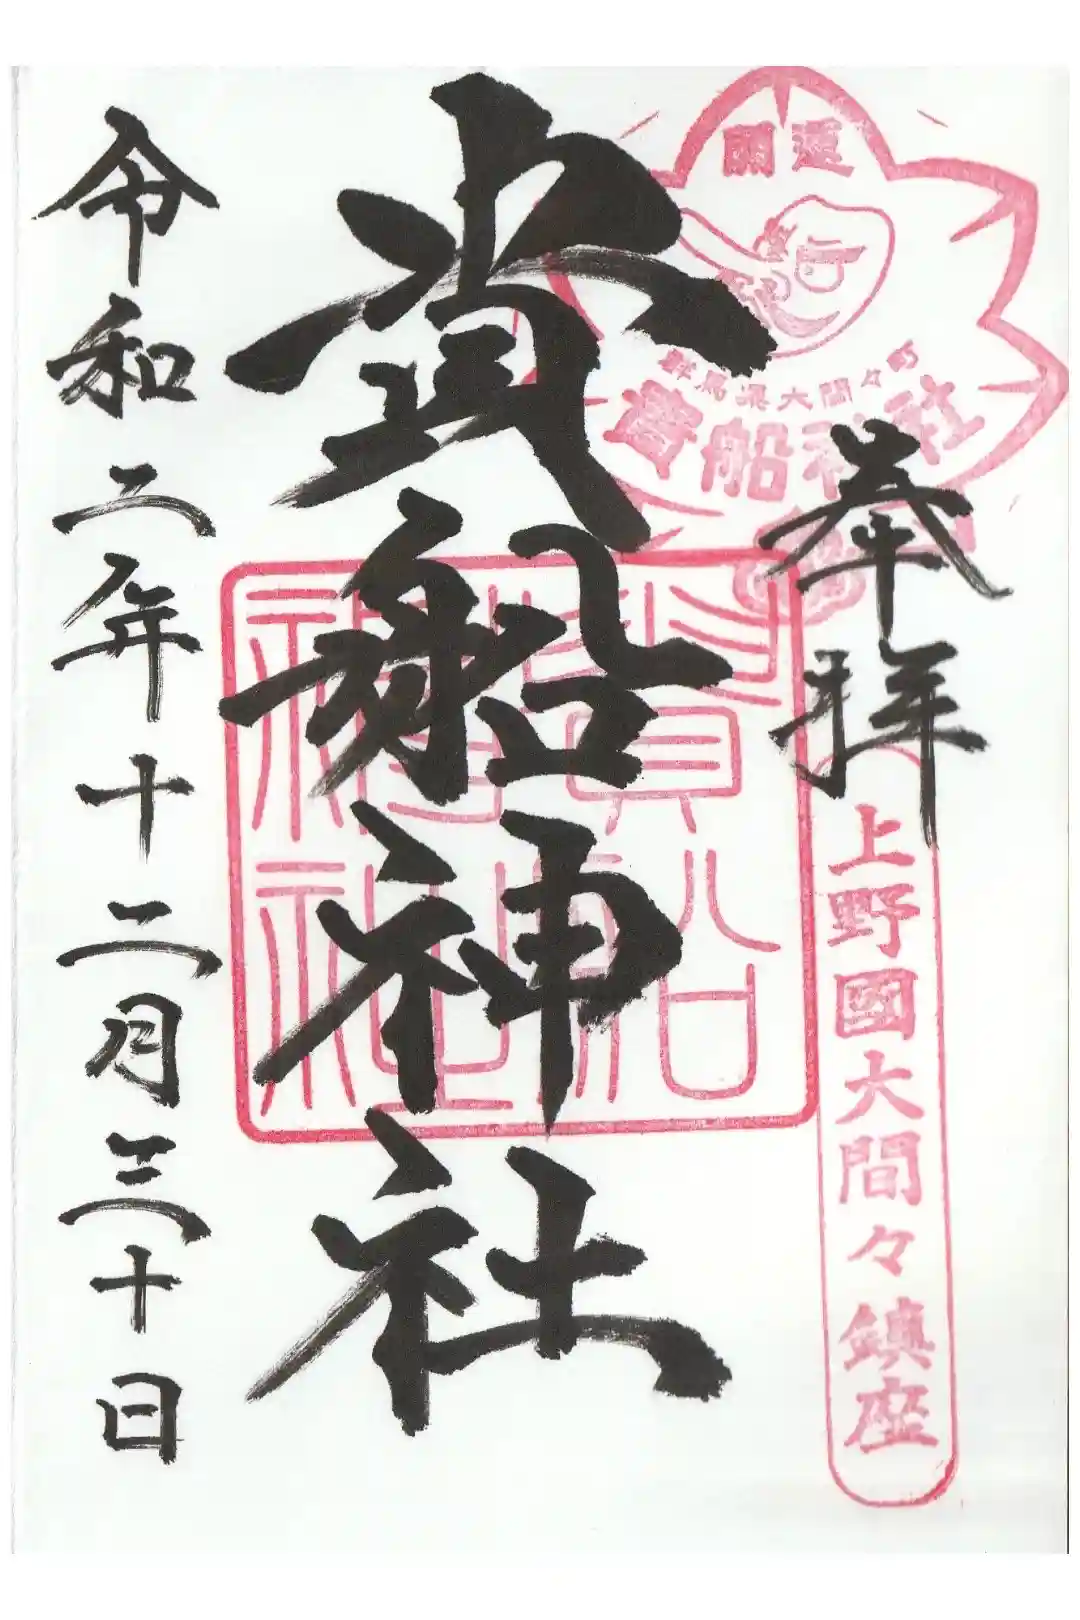 開運
群馬県大間々町
貴船神社
奉拝
上野國大間々鎮座
貴船神社
貴船神社
令和二年十二月三十日